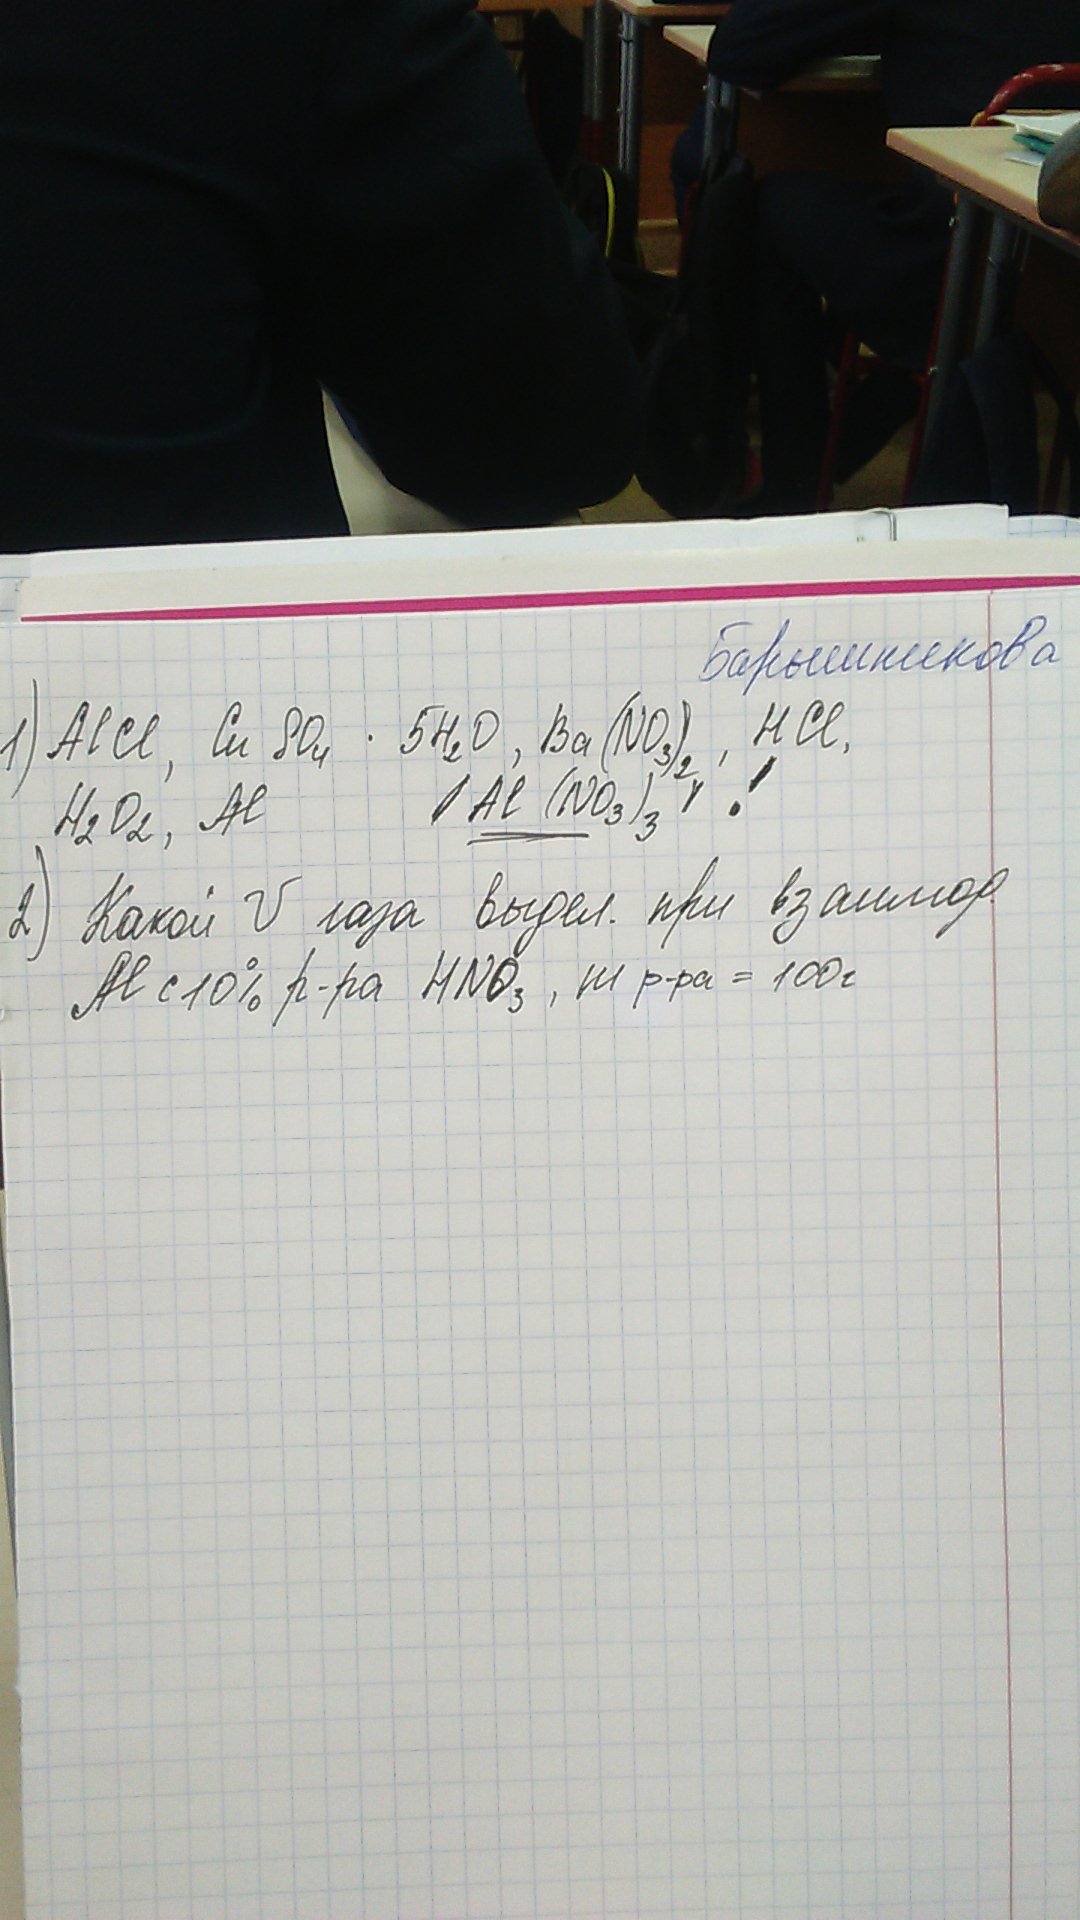 Барышникова
1) AlCl, CuSO₄ · 5H₂O, Ba(NO₃)₂, HCl,
H₂O₂, Al   Al(NO₃)₃ !
2) Какой V газа выдел. при взаимод.
Al с 10% р-ра HNO₃, m р-ра = 100г